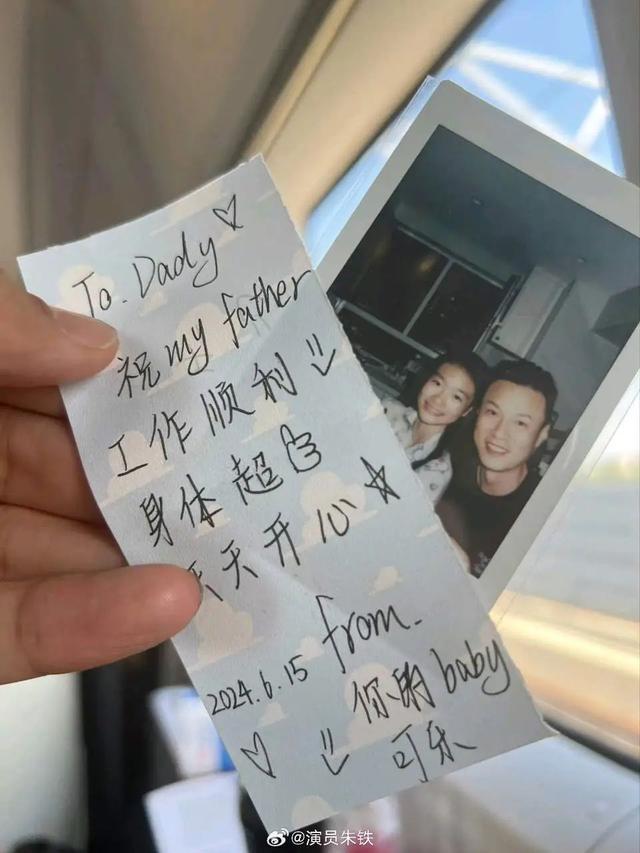 To. Dady
祝my father
工作顺利
身体超
天天开心
2024.6.15
from.
你的baby
可乐
@演员朱铁